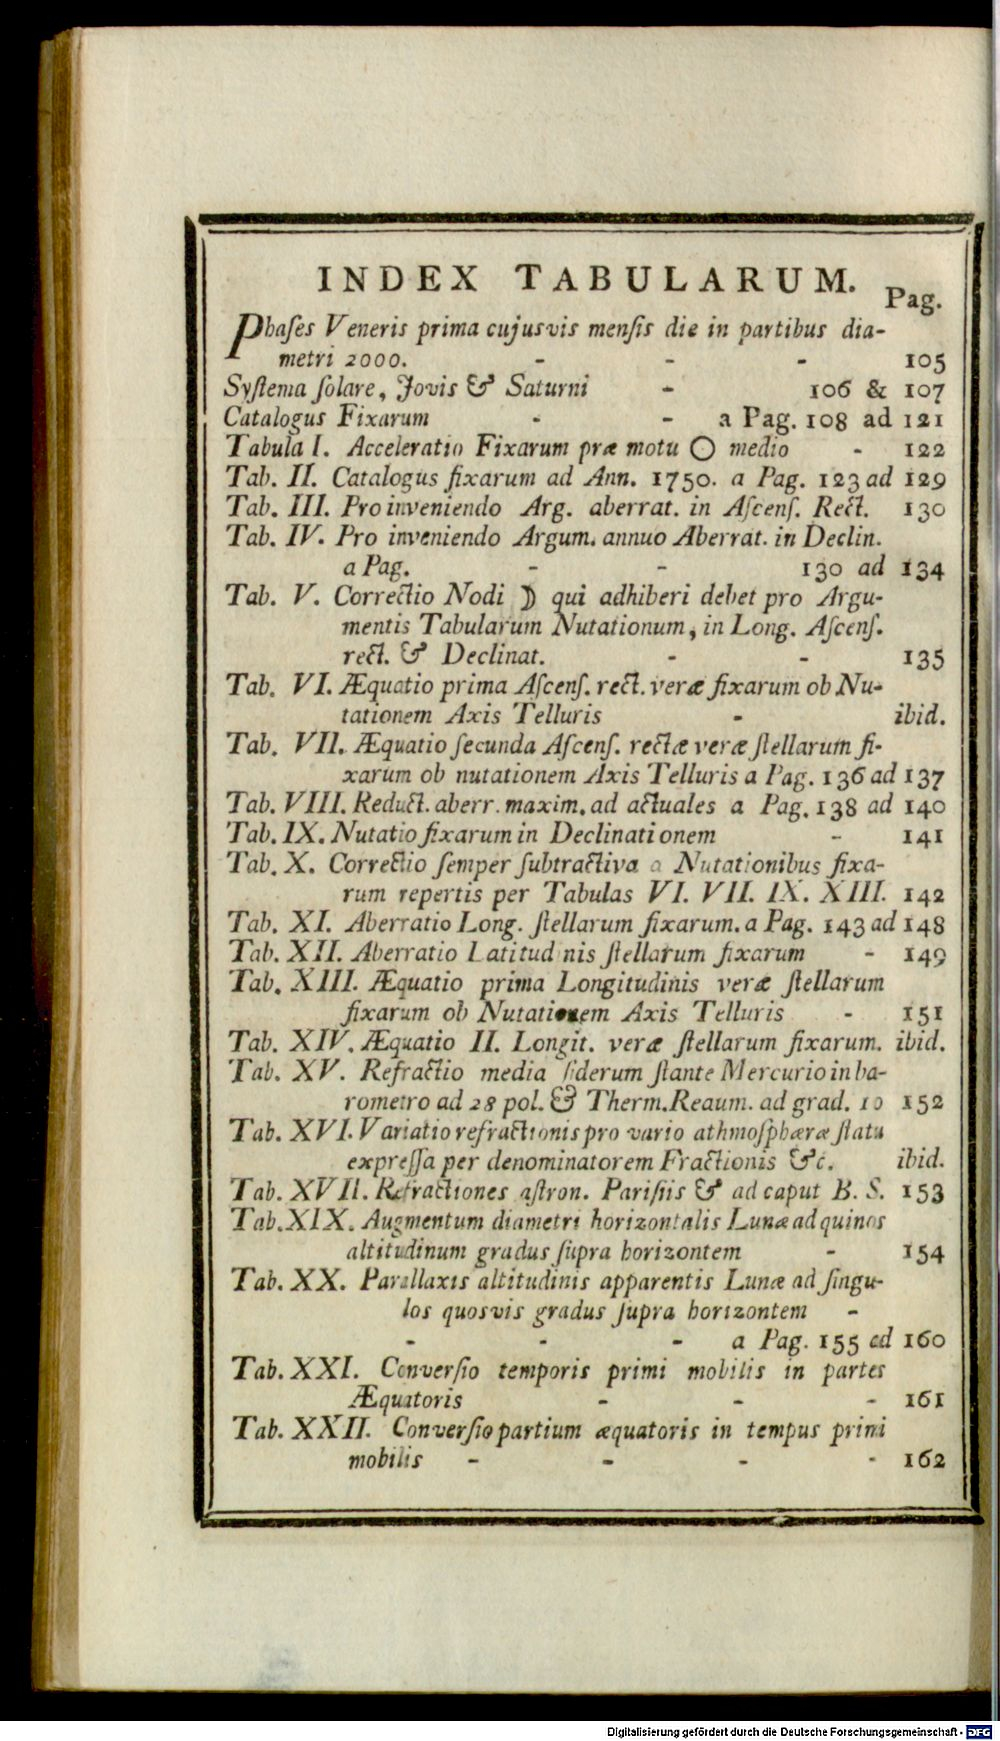 INDEX TABULARUM.
Pag.
Phaſes Veneris prima cujusvis menſis die in partibus dia-
metri 2000. - - - 105
Syſtema ſolare, Jovis & Saturni - 106 & 107
Catalogus Fixarum - - a Pag. 108 ad 121
Tabula I. Acceleratio Fixarum præ motu ☉ medio - 122
Tab. II. Catalogus fixarum ad Ann. 1750. a Pag. 123 ad 129
Tab. III. Pro inveniendo Arg. aberrat. in Aſcenſ. Rect. 130
Tab. IV. Pro inveniendo Argum. annuo Aberrat. in Declin.
a Pag. - - 130 ad 134
Tab. V. Correctio Nodi ☽ qui adhiberi debet pro Argu-
mentis Tabularum Nutationum, in Long. Aſcenſ.
rect. & Declinat. - - 135
Tab. VI. Æquatio prima Aſcenſ. rect. veræ fixarum ob Nu-
tationem Axis Telluris - ibid.
Tab. VII. Æquatio ſecunda Aſcenſ. rectæ veræ ſtellarum fi-
xarum ob nutationem Axis Telluris a Pag. 136 ad 137
Tab. VIII. Reduct. aberr. maxim. ad actuales a Pag. 138 ad 140
Tab. IX. Nutatio fixarum in Declinationem - 141
Tab. X. Correctio ſemper ſubtractiva a Nutationibus fixa-
rum repertis per Tabulas VI. VII. IX. XIII. 142
Tab. XI. Aberratio Long. ſtellarum fixarum. a Pag. 143 ad 148
Tab. XII. Aberratio Latitudinis ſtellarum fixarum - 149
Tab. XIII. Æquatio prima Longitudinis veræ ſtellarum
fixarum ob Nutationem Axis Telluris - 151
Tab. XIV. Æquatio II. Longit. veræ ſtellarum fixarum. ibid.
Tab. XV. Refractio media ſiderum ſtante Mercurio in ba-
rometro ad 28 pol. & Therm. Reaum. ad grad. 10 152
Tab. XVI. Variatio refractionis pro vario athmoſphæræ ſtatu
expreſſa per denominatorem Fractionis &c. ibid.
Tab. XVII. Refractiones aſtron. Pariſiis & ad caput B. S. 153
Tab. XIX. Augmentum diametri horizontalis Lunæ ad quinos
altitudinum gradus ſupra horizontem - 154
Tab. XX. Parallaxis altitudinis apparentis Lunæ ad ſingu-
los quosvis gradus ſupra horizontem -
- - - a Pag. 155 ad 160
Tab. XXI. Converſio temporis primi mobilis in partes
Æquatoris - - - 161
Tab. XXII. Converſio partium æquatoris in tempus primi
mobilis - - - - 162
Digitalisierung gefördert durch die Deutsche Forschungsgemeinschaft - DFG